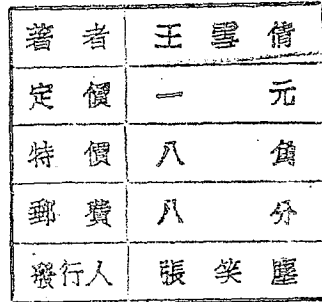 著者 王雪倩
定價 一元
特價 八角
郵費 八分
發行人 張笑塵